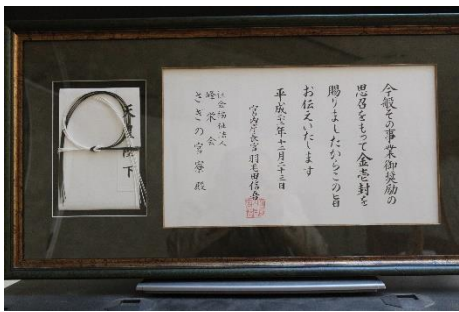 今般その事業御奨励の
思召をもって金壱封を
賜りましたからこの旨
お伝えいたします
平成 年十二月二十三日
宮内庁長官 羽毛田信吾
社会福祉法人
栄会
さきの宮寮 殿
天 陛下